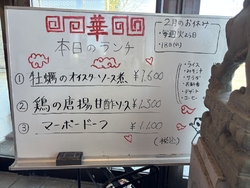 華
本日のランチ
① 牡蠣のオイスターソース煮 ¥1,600
② 鶏の唐揚 甘酢ソース ¥1,500
③ マーボードーフ ¥1,100
(税込)
2月のお休み
・毎週火曜日
・ライス
・サラダ
・デザート
・コーヒー